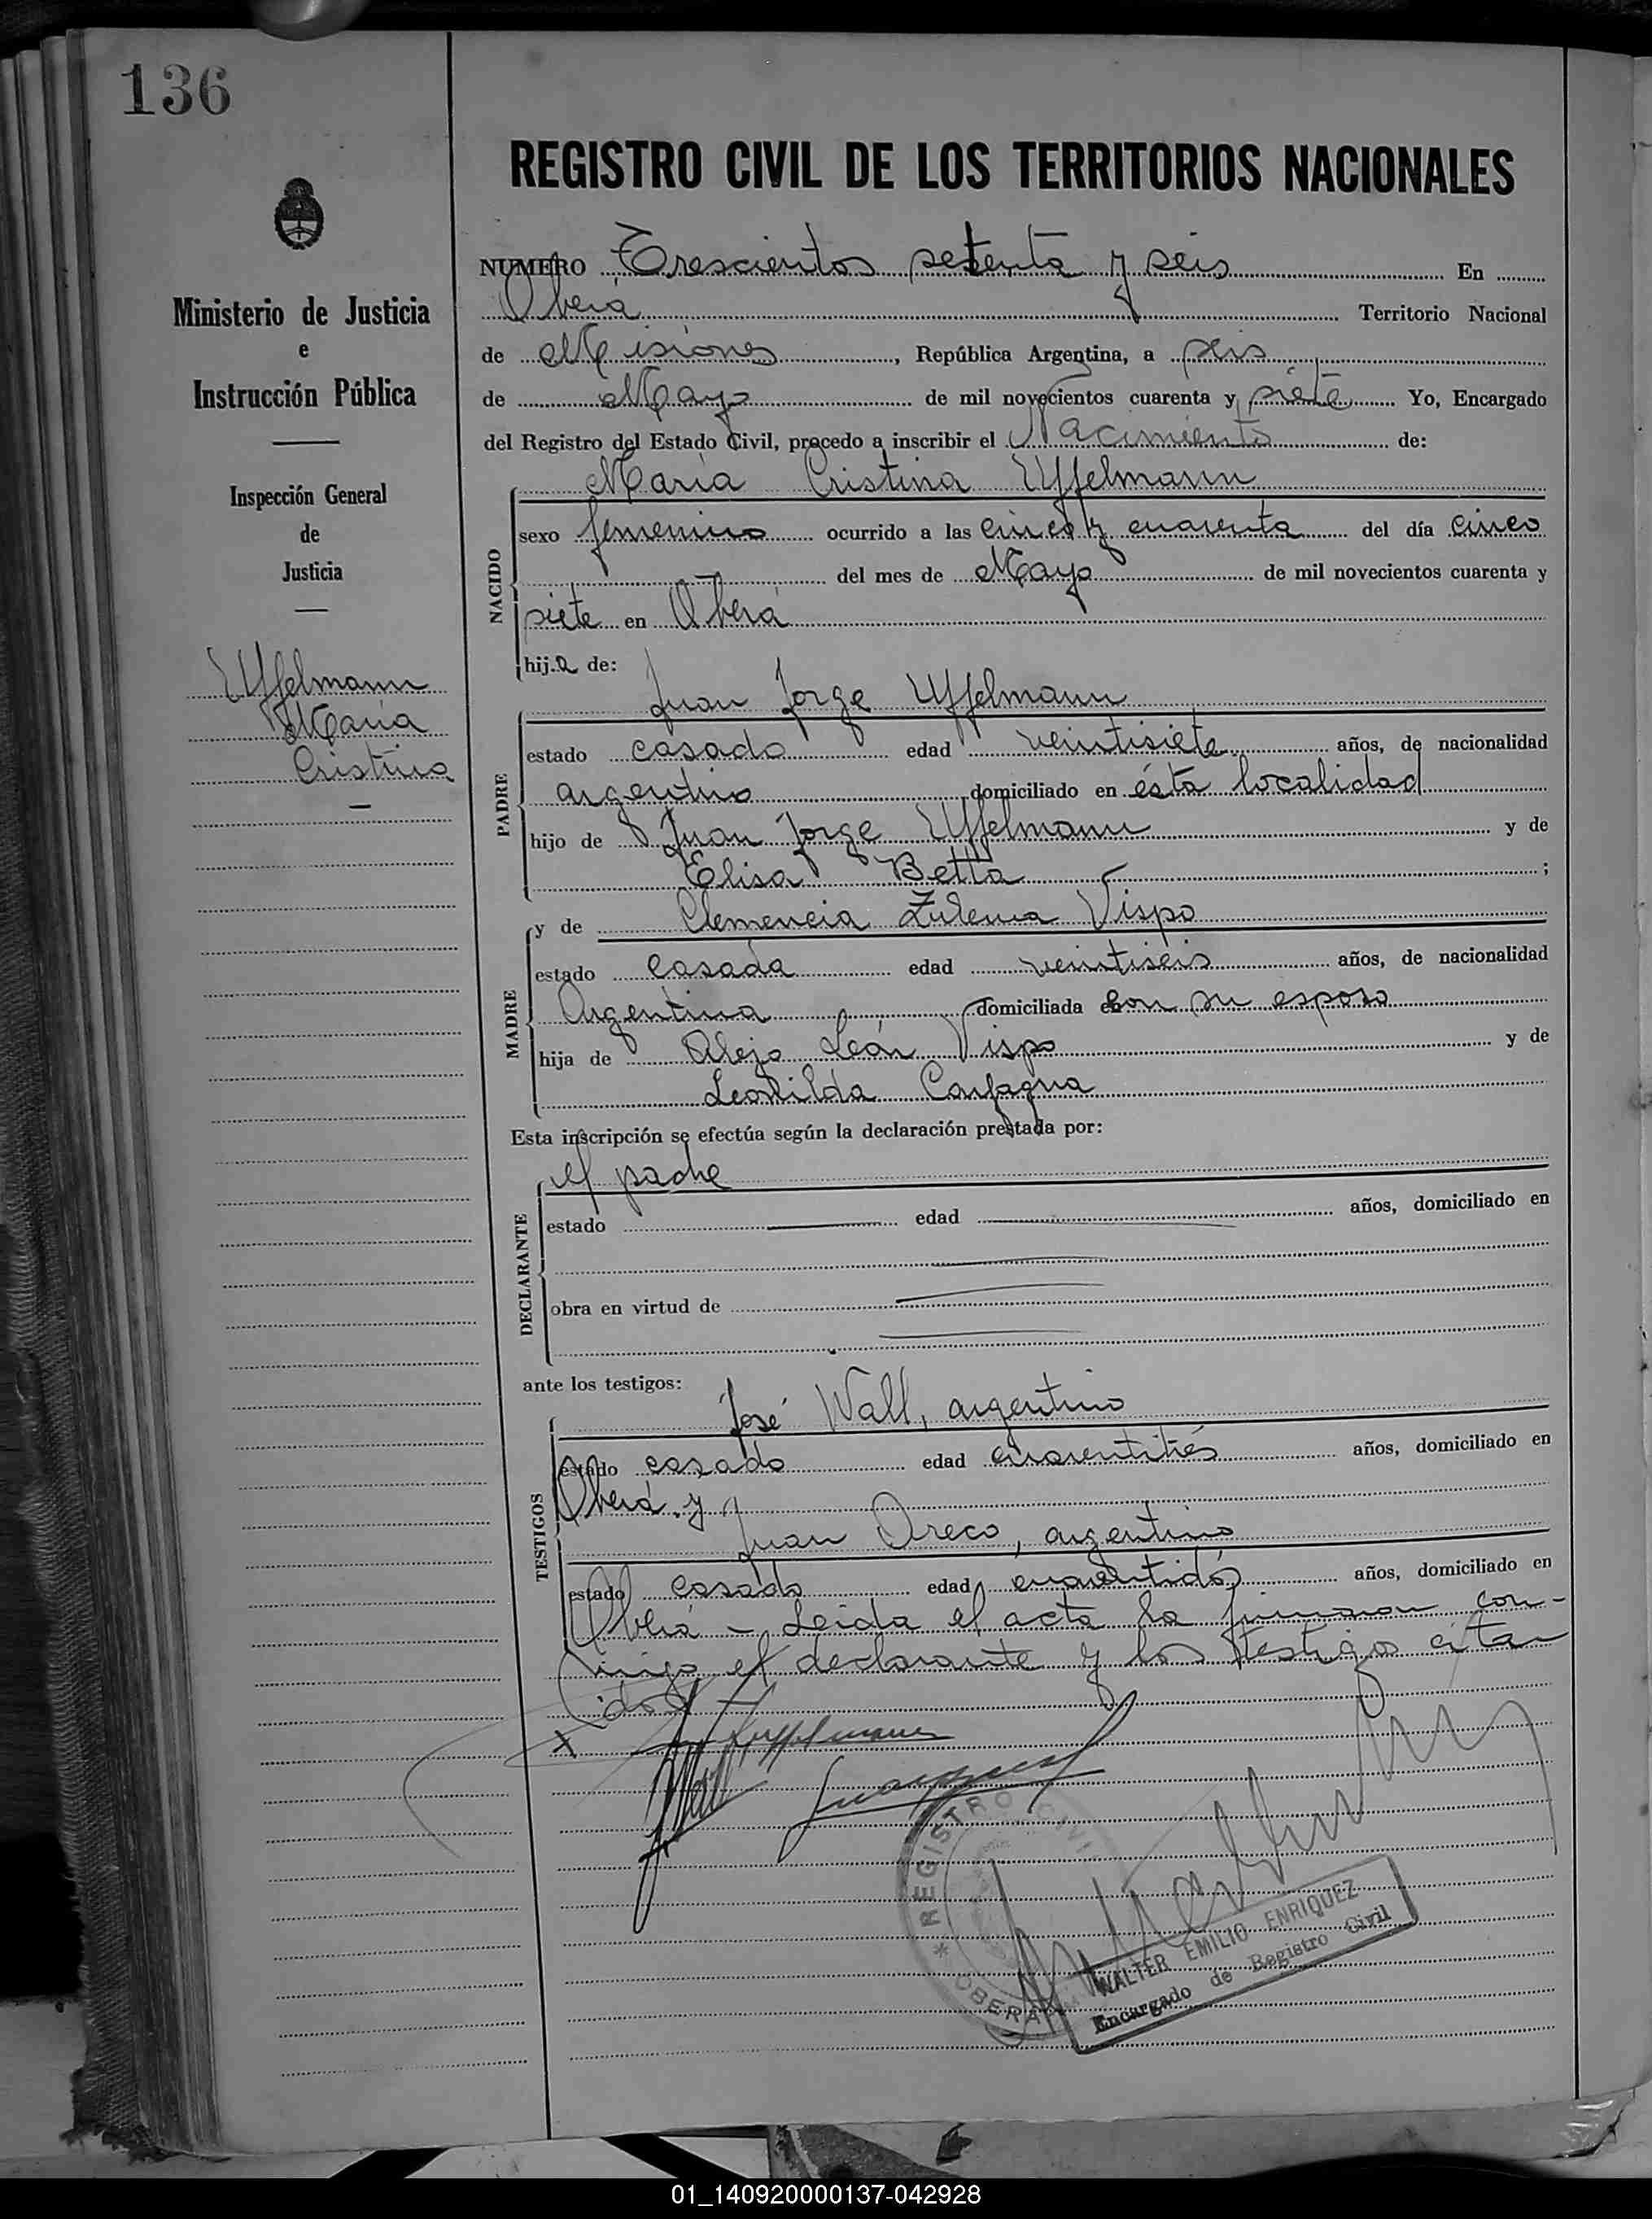 136
REGISTRO CIVIL DE LOS TERRITORIOS NACIONALES
Ministerio de Justicia
e
Instrucción Pública
Inspección General
de
Justicia
Uffelmann
María
Cristina
NUMERO Trescientos setenta y seis En
Oberá Territorio Nacional
de Misiones, República Argentina, a seis
de Mayo de mil novecientos cuarenta y siete Yo, Encargado
del Registro del Estado Civil, procedo a inscribir el Nacimiento de:
María Cristina Uffelmann
NACIDO
sexo femenino ocurrido a las cinco y cuarenta del día cinco
del mes de Mayo de mil novecientos cuarenta y
siete en Oberá
hija de:
Juan Jorge Uffelmann
PADRE
estado casado edad veintisiete años, de nacionalidad
argentino domiciliado en ésta localidad
hijo de Juan Jorge Uffelmann y de
Elisa Betta ;
y de Clemencia Zulema Vispo
MADRE
estado casada edad veintiseis años, de nacionalidad
Argentina domiciliada con su esposo
hija de Alejo León Vispo y de
Leontilda Confagna
Esta inscripción se efectúa según la declaración prestada por:
el padre
DECLARANTE
estado edad años, domiciliado en
obra en virtud de
ante los testigos:
José Wall, argentino
TESTIGOS
estado casado edad cuarentitrés años, domiciliado en
Oberá y
Juan Oreco, argentino
estado casado edad cuarentidós años, domiciliado en
Oberá - Leida el acta la firmaron con-
migo el declarante y los testigos cita
dos
X
REGISTRO CIVIL
* OBERÁ
WALTER EMILIO ENRIQUEZ
Encargado de Registro Civil
01_140920000137-042928